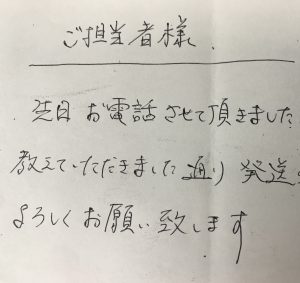 ご担当者様
先日 お電話させて頂きました
教えていただきました通り 発送
よろしくお願い致します